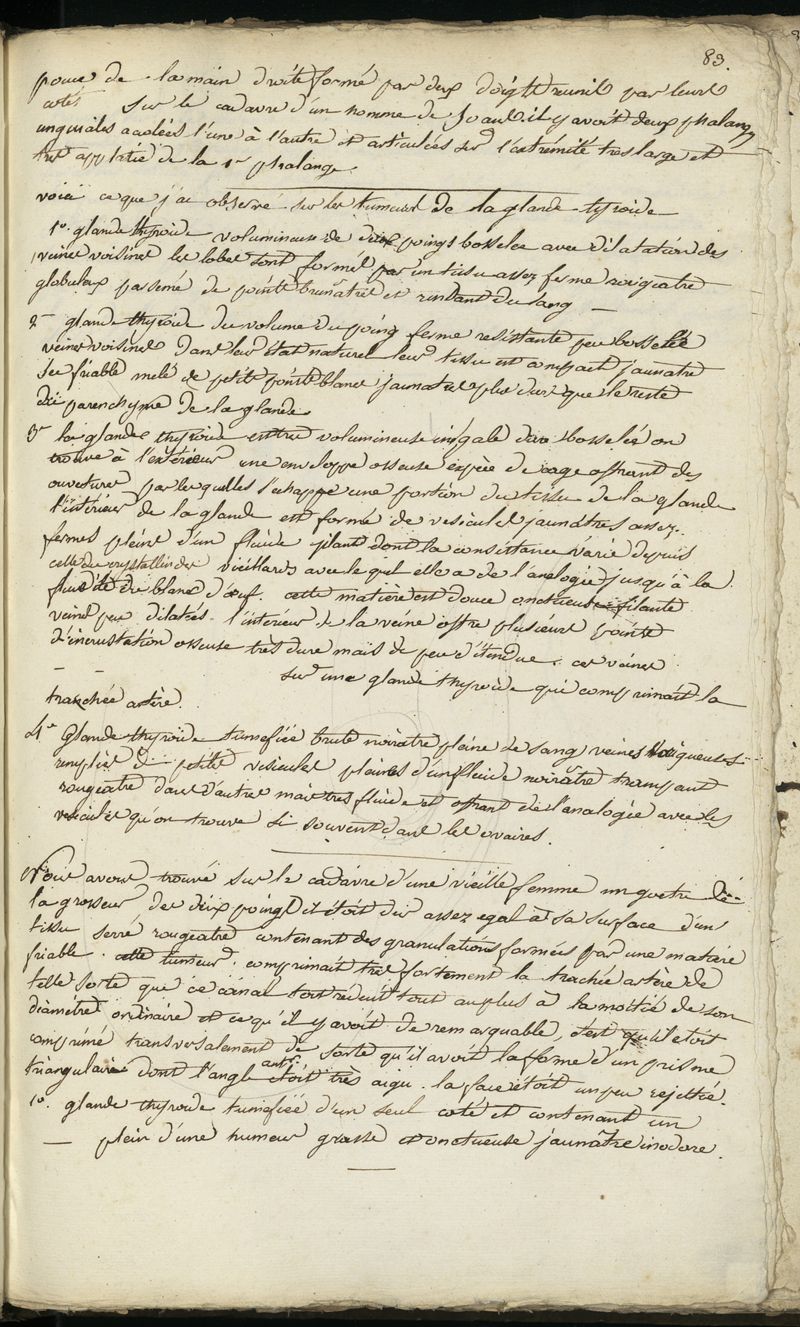 83.
pouce de la main droite formé par deux doigts reunis par leurs
cotés sur le cadavre d'un homme de 50 ans il y avoit deux phalanges
unguiales acolées l'une à l'autre et articulées sur l'extrémité tres large et
tres applatie de la 1re phalange.
voici ce que j'ai observé sur les tumeurs de la glande tyroide
1o. glande thyroide volumineuse de deux poings bosselée avec dilatation des
veines voisines les lobes sont formés par un tissu assez ferme rougeatre
globuleux parsemé de points brunatres et rendant du sang —
2e glande thyroide du volume du poing ferme resistante peu bosselée
veines voisines dans leur état naturel leur tissu est compact jaunatre
sec friable melé de petits points blancs jaunatres plus durs que le reste
du parenchyme de la glande.
3e la glande thyroide volumineuse inégale dure bosselée on
trouve à l'extérieur une enveloppe osseuse espèce de cage offrant des
ouvertures par lesquelles s'echappe une portion du tissu de la glande
l'intérieur de la glande est formé de vesicules jaunâtres assez
fermes pleines d'un fluide filant dont la consistance varie depuis
celle du crystallin des vieillards avec lequel elle a de l'analogie jusqu'à la
fluidité du blanc d'œuf. cette matière est douce onctueuse filante
veines peu dilatées. l'intérieur de la veine offre plusieurs points
d'incrustation osseuse très dure mais de peu d'étendue. ces veines
— — sur une glande thyroïde qui comprimait la
trachée artère.
4e Glande thyroïde tumefiée brute noiratre pleine de sang veines
remplies de petites vesicules pleines d'un fluide noirâtre trempant
rougeatre dans d'autres mais tres fluide et offrant de l'analogie avec les
vesicules qu'on trouve si souvent dans les ovaires.
Nous avons trouvé sur le cadavre d'une vieille femme un goetre de
la grosseur de deux poings il étoit dur assez egal à sa surface d'un
tissu serré rougeatre contenant des granulations formées par une matière
friable. cette tumeur comprimait tres fortement la trachée artère de
telle sorte que ce canal soit réduit tout au plus à la moitié de son
diamétre ordinaire et ce qu'il y avoit de remarquable, c'est qu'il etoit
comprimé transversalement de sorte qu'il avoit la forme d'un prisme
triangulaire dont l'angle antr. étoit très aigu. la face étoit un peu rejettée.
1o. glande thyroide tumefiée d'un seul coté et contenant un
— plein d'une humeur grasse et onctueuse jaunâtre inodore.